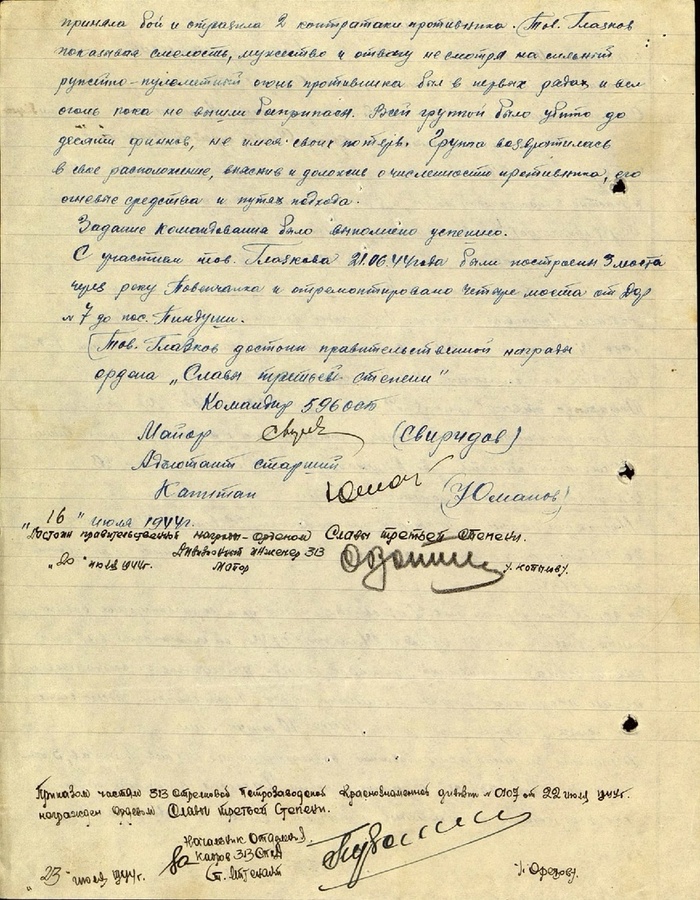 приняла бой и отразила 2 контратаки противника. Тов. Глазков
показывая смелость, мужество и отвагу несмотря на сильный
ружейно-пулеметный огонь противника был в первых рядах и вел
огонь пока не вышли боеприпасы. Всей группой было убито до
десяти финнов, не имея своих потерь. Группа возвратилась
в свое расположение, выяснив и доложив о численности противника, его
огневые средства и путях подхода.
Задание командования было выполнено успешно.
С участием тов. Глазкова 21.06.44 года были построены 3 моста
через реку Повенчанка и отремонтировано четыре моста от
№ 7 до пос. Пиндуши.
Тов. Глазков достоин правительственной награды
ордена „Славы третьей степени"
Командир 596 осб
Майор (Свиридов)
Адъютант старший
Капитан (Юманов)
"16" июля 1944г.
"Достоин правительственной награды - орденом Славы третьей степени.
Дивизионный инженер 313
„20" июля 1944г. Майор
Приказом частям 313 Стрелковой Петрозаводской Краснознаменной дивизии № 0107 от 22 июля 1944г.
награжден орденом Славы третьей степени.
Начальник Отделения
За кадров 313
Ст. Лейтенант
„23" июля 1944г.